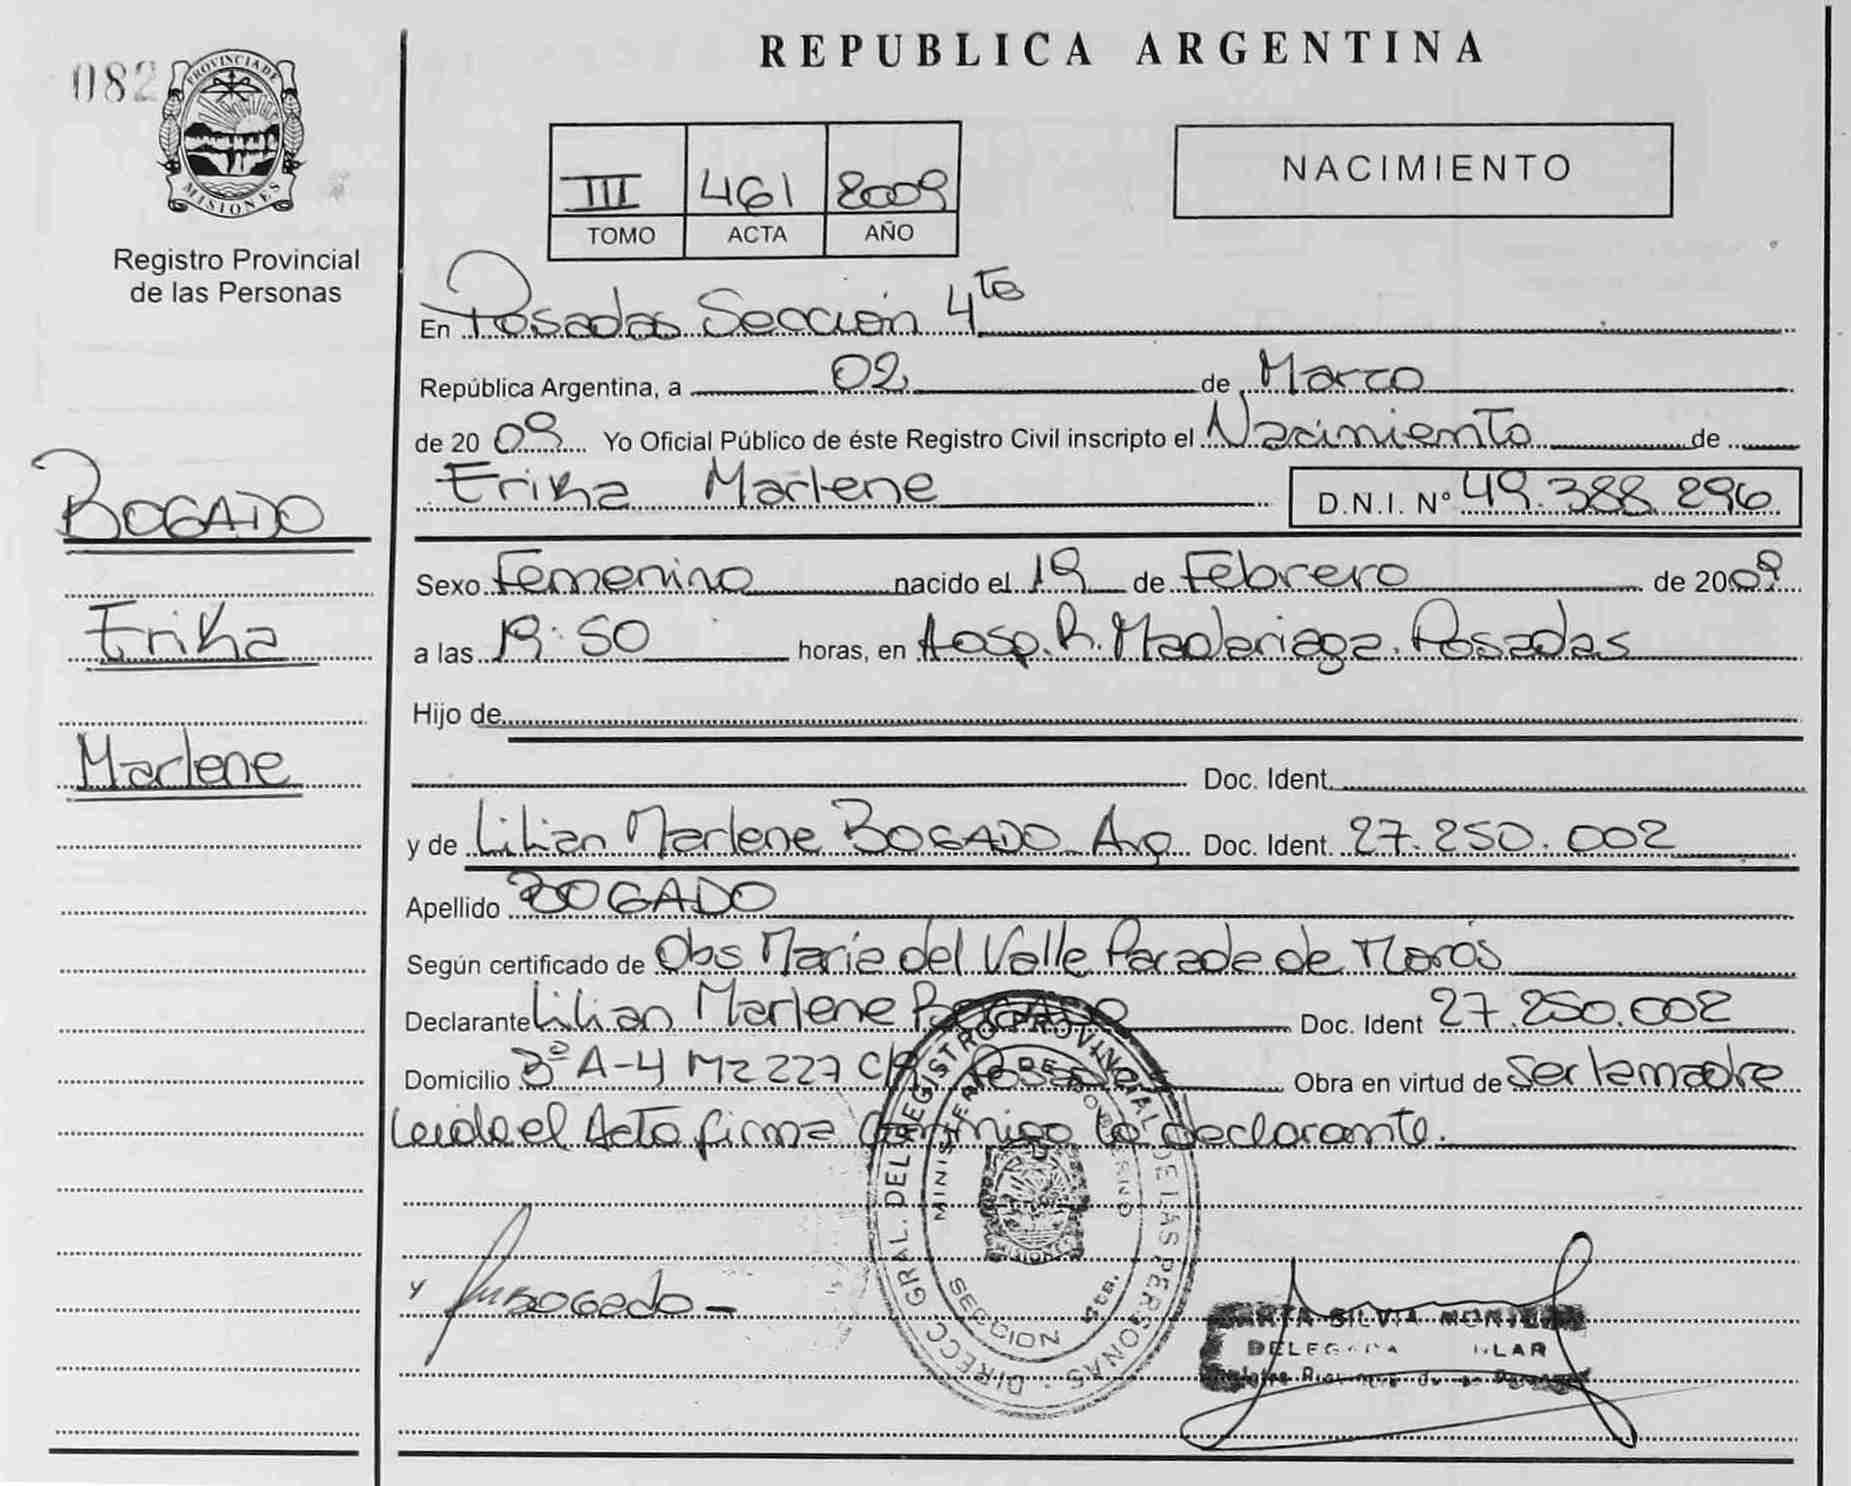 082
PROVINCIA DE
MISIONES
Registro Provincial
de las Personas
BOGADO
Erika
Marlene
REPUBLICA ARGENTINA
III 461 2009
TOMO ACTA AÑO
NACIMIENTO
En Posadas Sección 4ta
República Argentina, a 02 de Marzo
de 2009 Yo Oficial Público de éste Registro Civil inscripto el Nacimiento de
Erika Marlene D.N.I. Nº 49.388.296
Sexo Femenino nacido el 19 de Febrero de 2009
a las 19:50 horas, en Hosp. R. Madariaga. Posadas
Hijo de
Doc. Ident.
y de Lilian Marlene BOGADO Arg Doc. Ident. 27.250.002
Apellido BOGADO
Según certificado de Obs María del Valle Parada de
Declarante Lilian Marlene BOGADO Doc. Ident 27.250.002
Domicilio Bº A-4 Mz 227 Posadas Obra en virtud de ser la madre
Leida el Acta firma conmigo la declarante.
DIRECC. GRAL. DEL REGISTRO PROVINCIAL DE LAS PERSONAS
MINISTERIO DE GOBIERNO
SECCION 4ta.
Bogado
SILVIA